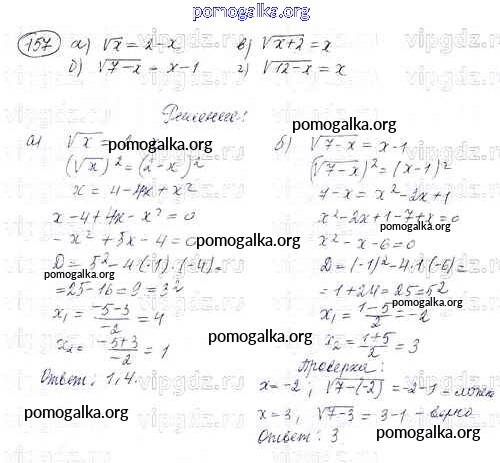 pomogalka.org
157 а) √x = 2 - x в) √x+2 = x
б) √7-x = x - 1 г) √12-x = x
Решение:
а) √x =
(√x)² = (2 - x)²
x = 4 - 4x + x²
x - 4 + 4x - x² = 0
- x² + 5x - 4 = 0
D = 5² - 4·(-1)·(-4) =
= 25 - 16 = 9 = 3²
x₁ = -5-3/-2 = 4
x₂ = -5+3/-2 = 1
Ответ: 1, 4.
б) √7-x = x - 1
(√7-x)² = (x - 1)²
7 - x = x² - 2x + 1
x² - 2x + 1 - 7 + x = 0
x² - x - 6 = 0
D = (-1)² - 4·1·(-6) =
= 1 + 24 = 25 = 5²
x₁ = 1-5/2 = -2
x₂ = 1+5/2 = 3
Проверка:
x = -2; √7-(-2) = -2-1 - ложно
x = 3, √7-3 = 3 - 1 - верно
Ответ: 3
pomogalka.org
pomogalka.org
pomogalka.org
pomogalka.org
pomogalka.org
pomogalka.org
pomogalka.org
pomogalka.org